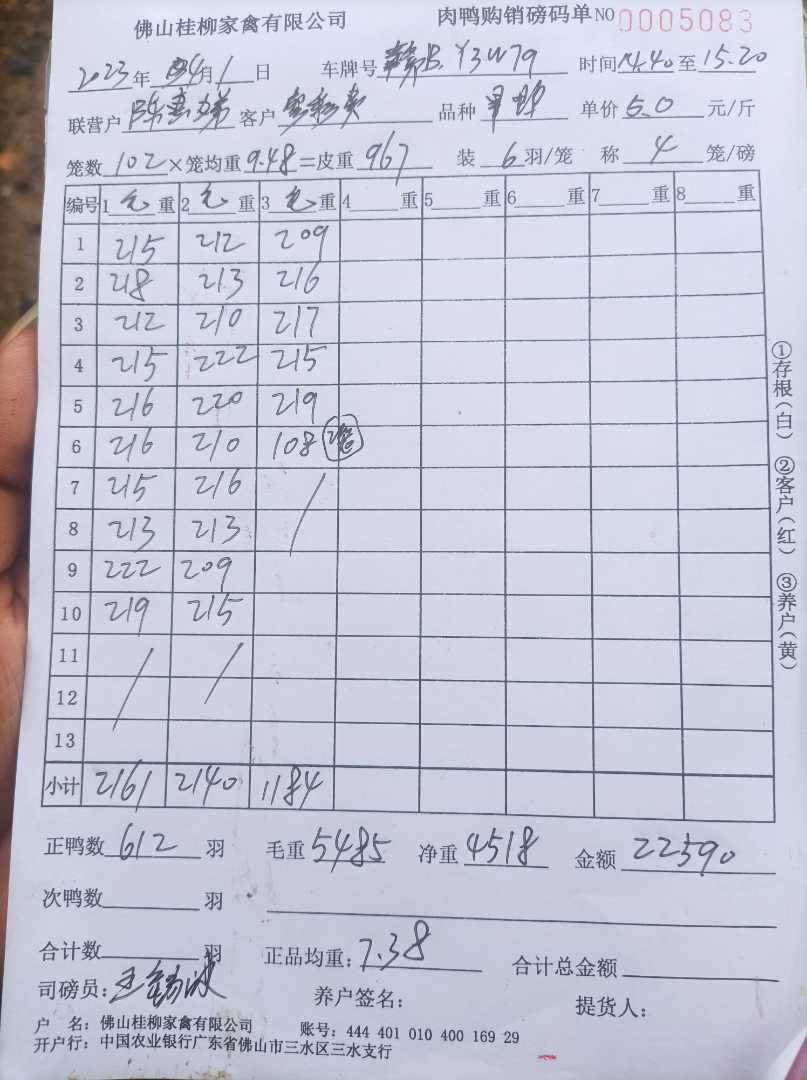 佛山桂柳家禽有限公司 肉鸭购销磅码单 NO 0005083
2023年 4月 1日 车牌号 赣B.Y3W79 时间 14.40 至 15.20
联营户 陈 客户 品种 单价 5.0 元/斤
笼数 102 ×笼均重 9.48 =皮重 967 装 6 羽/笼 称 4 笼/磅
编号 1 毛 重 2 毛 重 3 毛 重 4 重 5 重 6 重 7 重 8 重
1 215 212 209
2 218 213 216
3 212 210 217
4 215 222 215
5 216 220 219
6 216 210 108 2笼
7 215 216 /
8 213 213
9 222 209
10 219 215
11 / /
12
13
小计 2161 2140 1184
正鸭数 612 羽 毛重 5485 净重 4518 金额 22590
次鸭数 羽
合计数 羽 正品均重: 7.38 合计总金额
司磅员: 王 波 养户签名: 提货人:
户 名: 佛山桂柳家禽有限公司 账号: 444 401 010 400 169 29
开户行: 中国农业银行广东省佛山市三水区三水支行
①存根(白) ②客户(红) ③养户(黄)